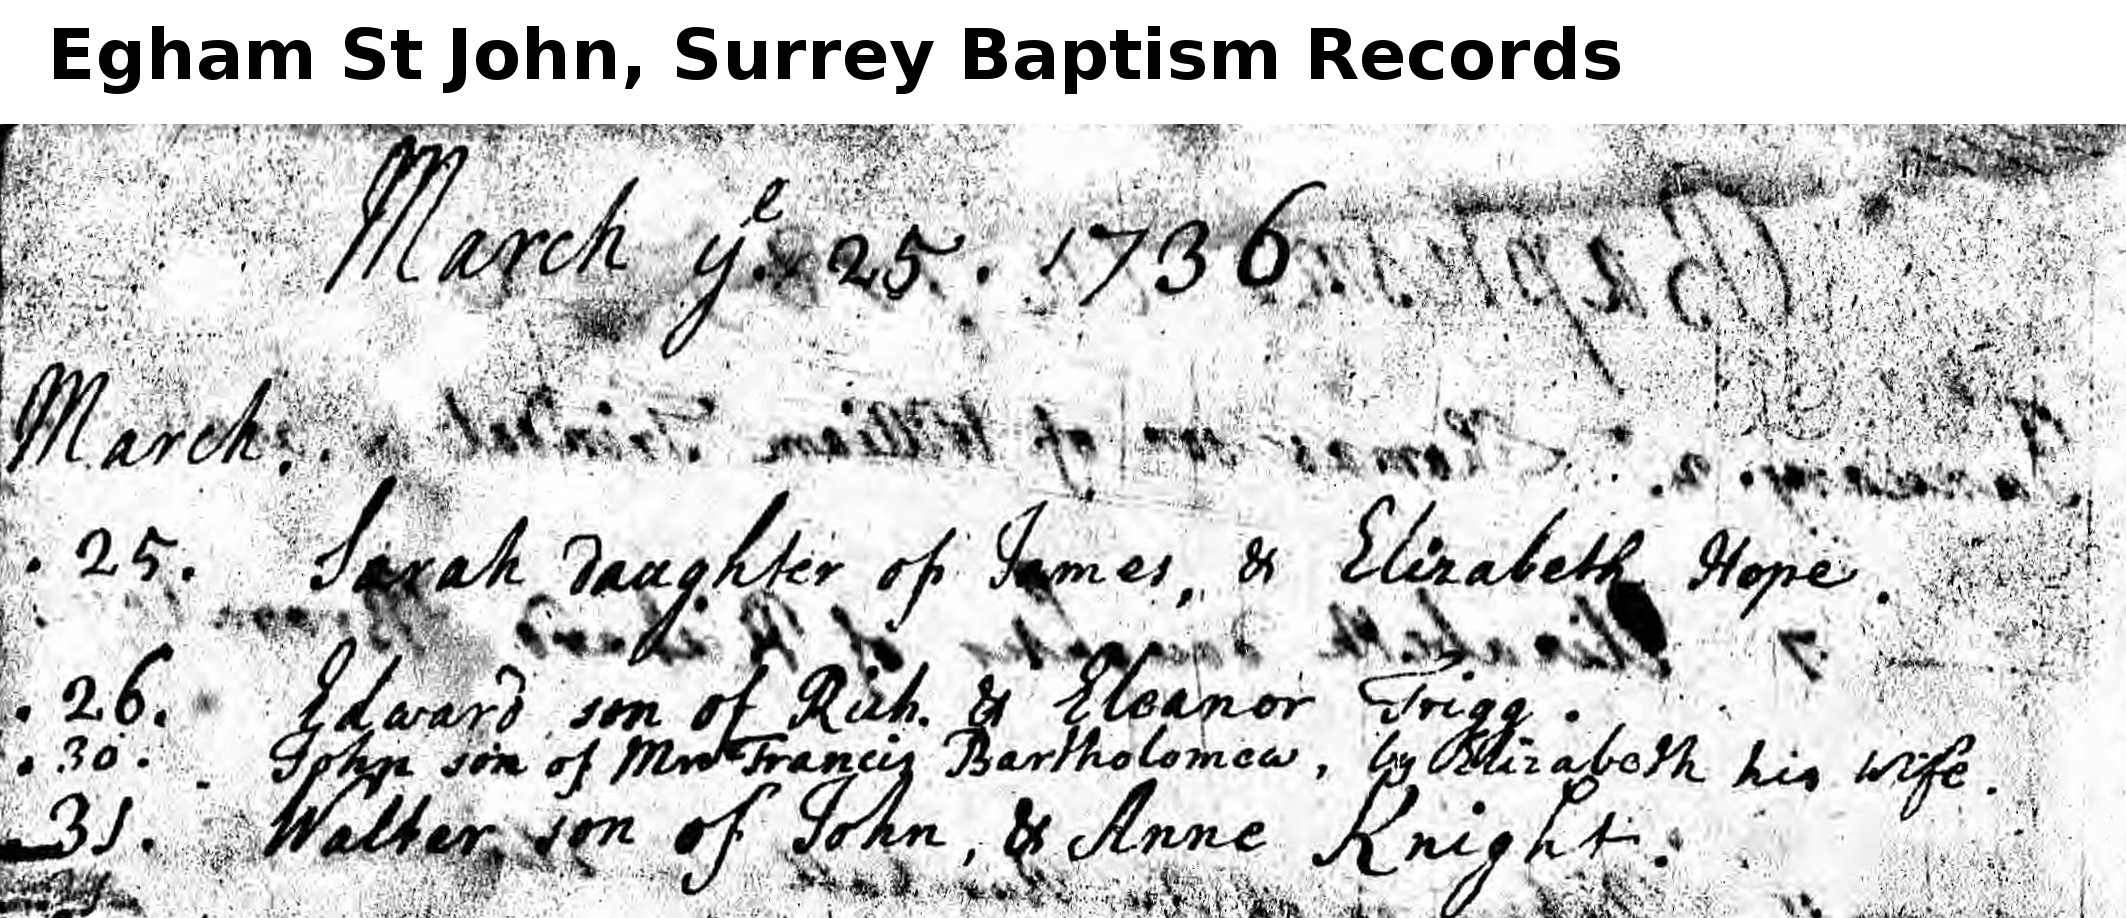 Egham St John, Surrey Baptism Records
March yᵉ. 25. 1736.
March.
. 25. Sarah daughter of James, & Elizabeth Hope.
. 26. Edward son of Rich. & Eleanor Trigg.
. 30. John son of Francis Bartholomew, by Elizabeth his wife.
31. Walter son of John, & Anne Knight.